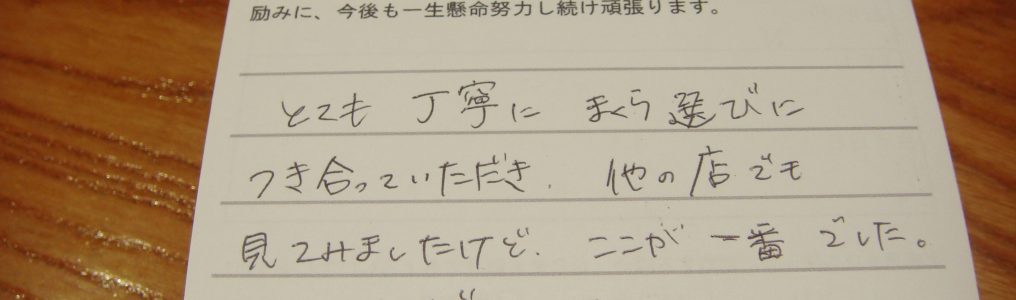 励みに、今後も一生懸命努力し続け頑張ります。
とても 丁寧に まくら選びに
つき合っていただき、他の店でも
見てみましたけど、ここが 一番 でした。